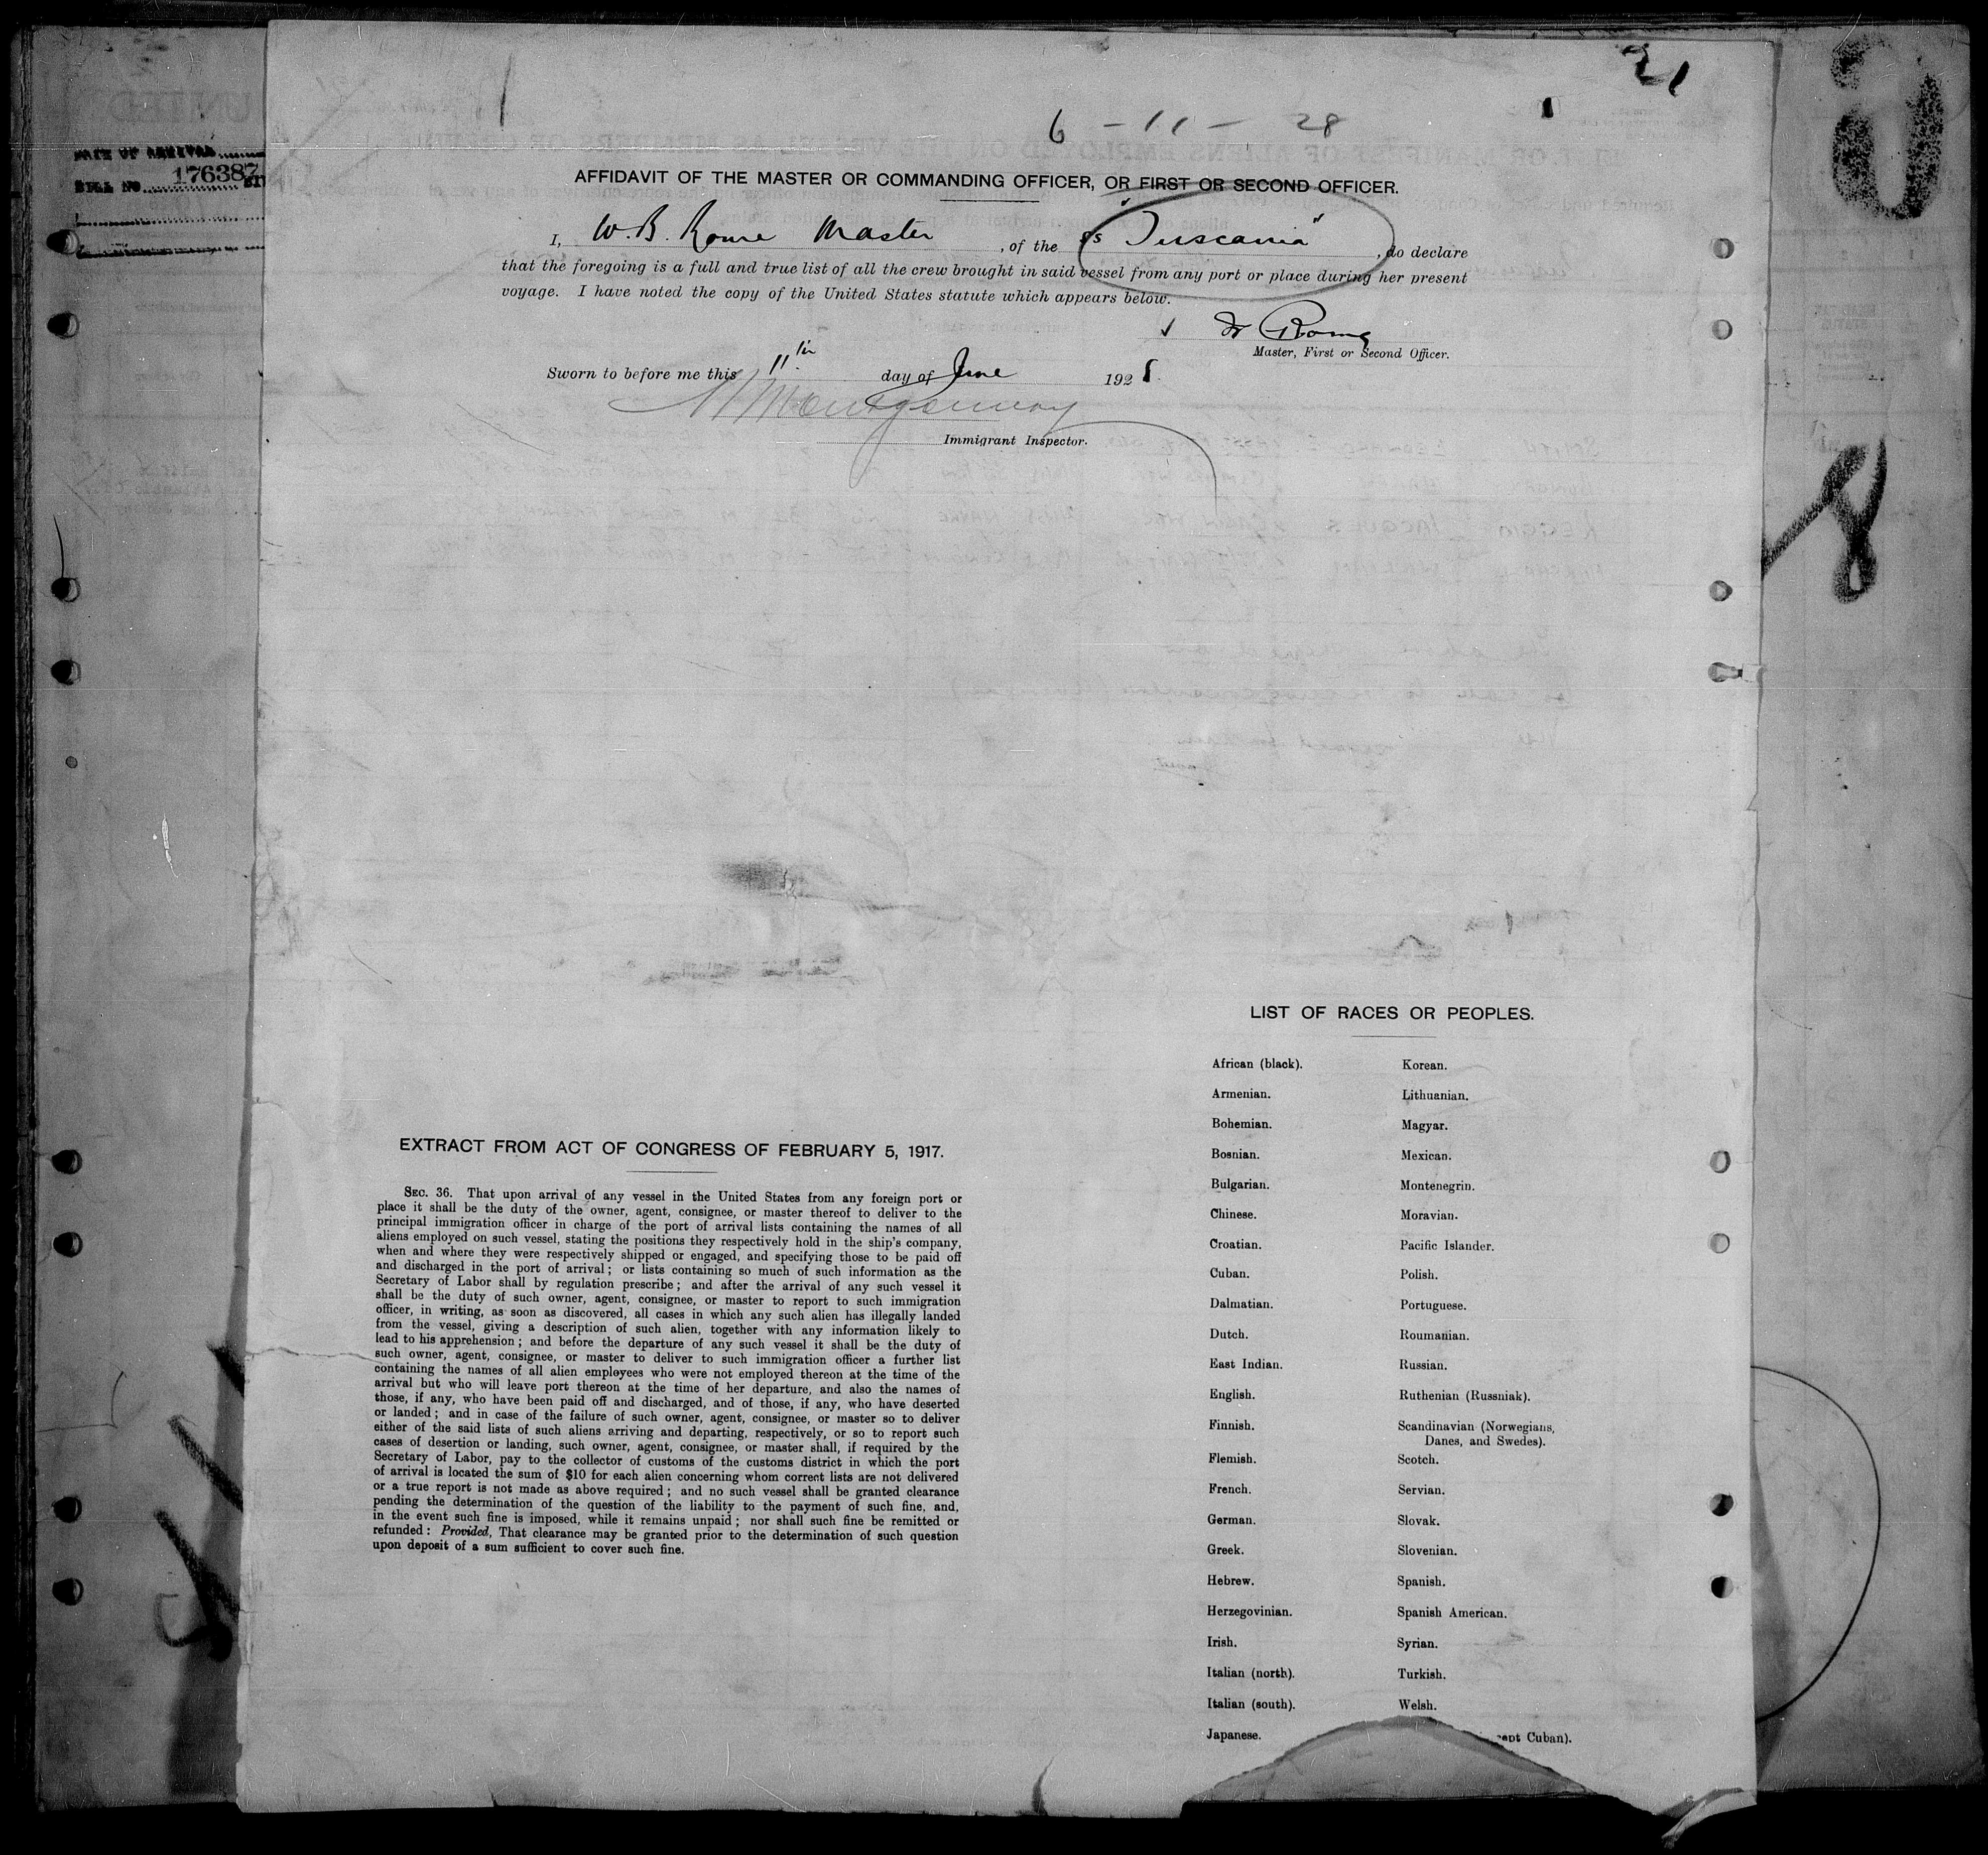 21
6 - 11 - 28
DATE OF ARRIVAL
BILL NO. 176387
AFFIDAVIT OF THE MASTER OR COMMANDING OFFICER, OR FIRST OR SECOND OFFICER.
I, W. B. Rome Master, of the SS "Tuscania", do declare
that the foregoing is a full and true list of all the crew brought in said vessel from any port or place during her present
voyage. I have noted the copy of the United States statute which appears below.
Master, First or Second Officer.
Sworn to before me this 11th day of June 1928
Montgomery
Immigrant Inspector.
EXTRACT FROM ACT OF CONGRESS OF FEBRUARY 5, 1917.
SEC. 36. That upon arrival of any vessel in the United States from any foreign port or
place it shall be the duty of the owner, agent, consignee, or master thereof to deliver to the
principal immigration officer in charge of the port of arrival lists containing the names of all
aliens employed on such vessel, stating the positions they respectively hold in the ship's company,
when and where they were respectively shipped or engaged, and specifying those to be paid off
and discharged in the port of arrival; or lists containing so much of such information as the
Secretary of Labor shall by regulation prescribe; and after the arrival of any such vessel it
shall be the duty of such owner, agent, consignee, or master to report to such immigration
officer, in writing, as soon as discovered, all cases in which any such alien has illegally landed
from the vessel, giving a description of such alien, together with any information likely to
lead to his apprehension; and before the departure of any such vessel it shall be the duty of
such owner, agent, consignee, or master to deliver to such immigration officer a further list
containing the names of all alien employees who were not employed thereon at the time of the
arrival but who will leave port thereon at the time of her departure, and also the names of
those, if any, who have been paid off and discharged, and of those, if any, who have deserted
or landed; and in case of the failure of such owner, agent, consignee, or master so to deliver
either of the said lists of such aliens arriving and departing, respectively, or so to report such
cases of desertion or landing, such owner, agent, consignee, or master shall, if required by the
Secretary of Labor, pay to the collector of customs of the customs district in which the port
of arrival is located the sum of $10 for each alien concerning whom correct lists are not delivered
or a true report is not made as above required; and no such vessel shall be granted clearance
pending the determination of the question of the liability to the payment of such fine, and,
in the event such fine is imposed, while it remains unpaid; nor shall such fine be remitted or
refunded: Provided, That clearance may be granted prior to the determination of such question
upon deposit of a sum sufficient to cover such fine.
LIST OF RACES OR PEOPLES.
African (black).
Armenian.
Bohemian.
Bosnian.
Bulgarian.
Chinese.
Croatian.
Cuban.
Dalmatian.
Dutch.
East Indian.
English.
Finnish.
Flemish.
French.
German.
Greek.
Hebrew.
Herzegovinian.
Irish.
Italian (north).
Italian (south).
Japanese.
Korean.
Lithuanian.
Magyar.
Mexican.
Montenegrin.
Moravian.
Pacific Islander.
Polish.
Portuguese.
Roumanian.
Russian.
Ruthenian (Russniak).
Scandinavian (Norwegians,
Danes, and Swedes).
Scotch.
Servian.
Slovak.
Slovenian.
Spanish.
Spanish American.
Syrian.
Turkish.
Welsh.
Cuban).